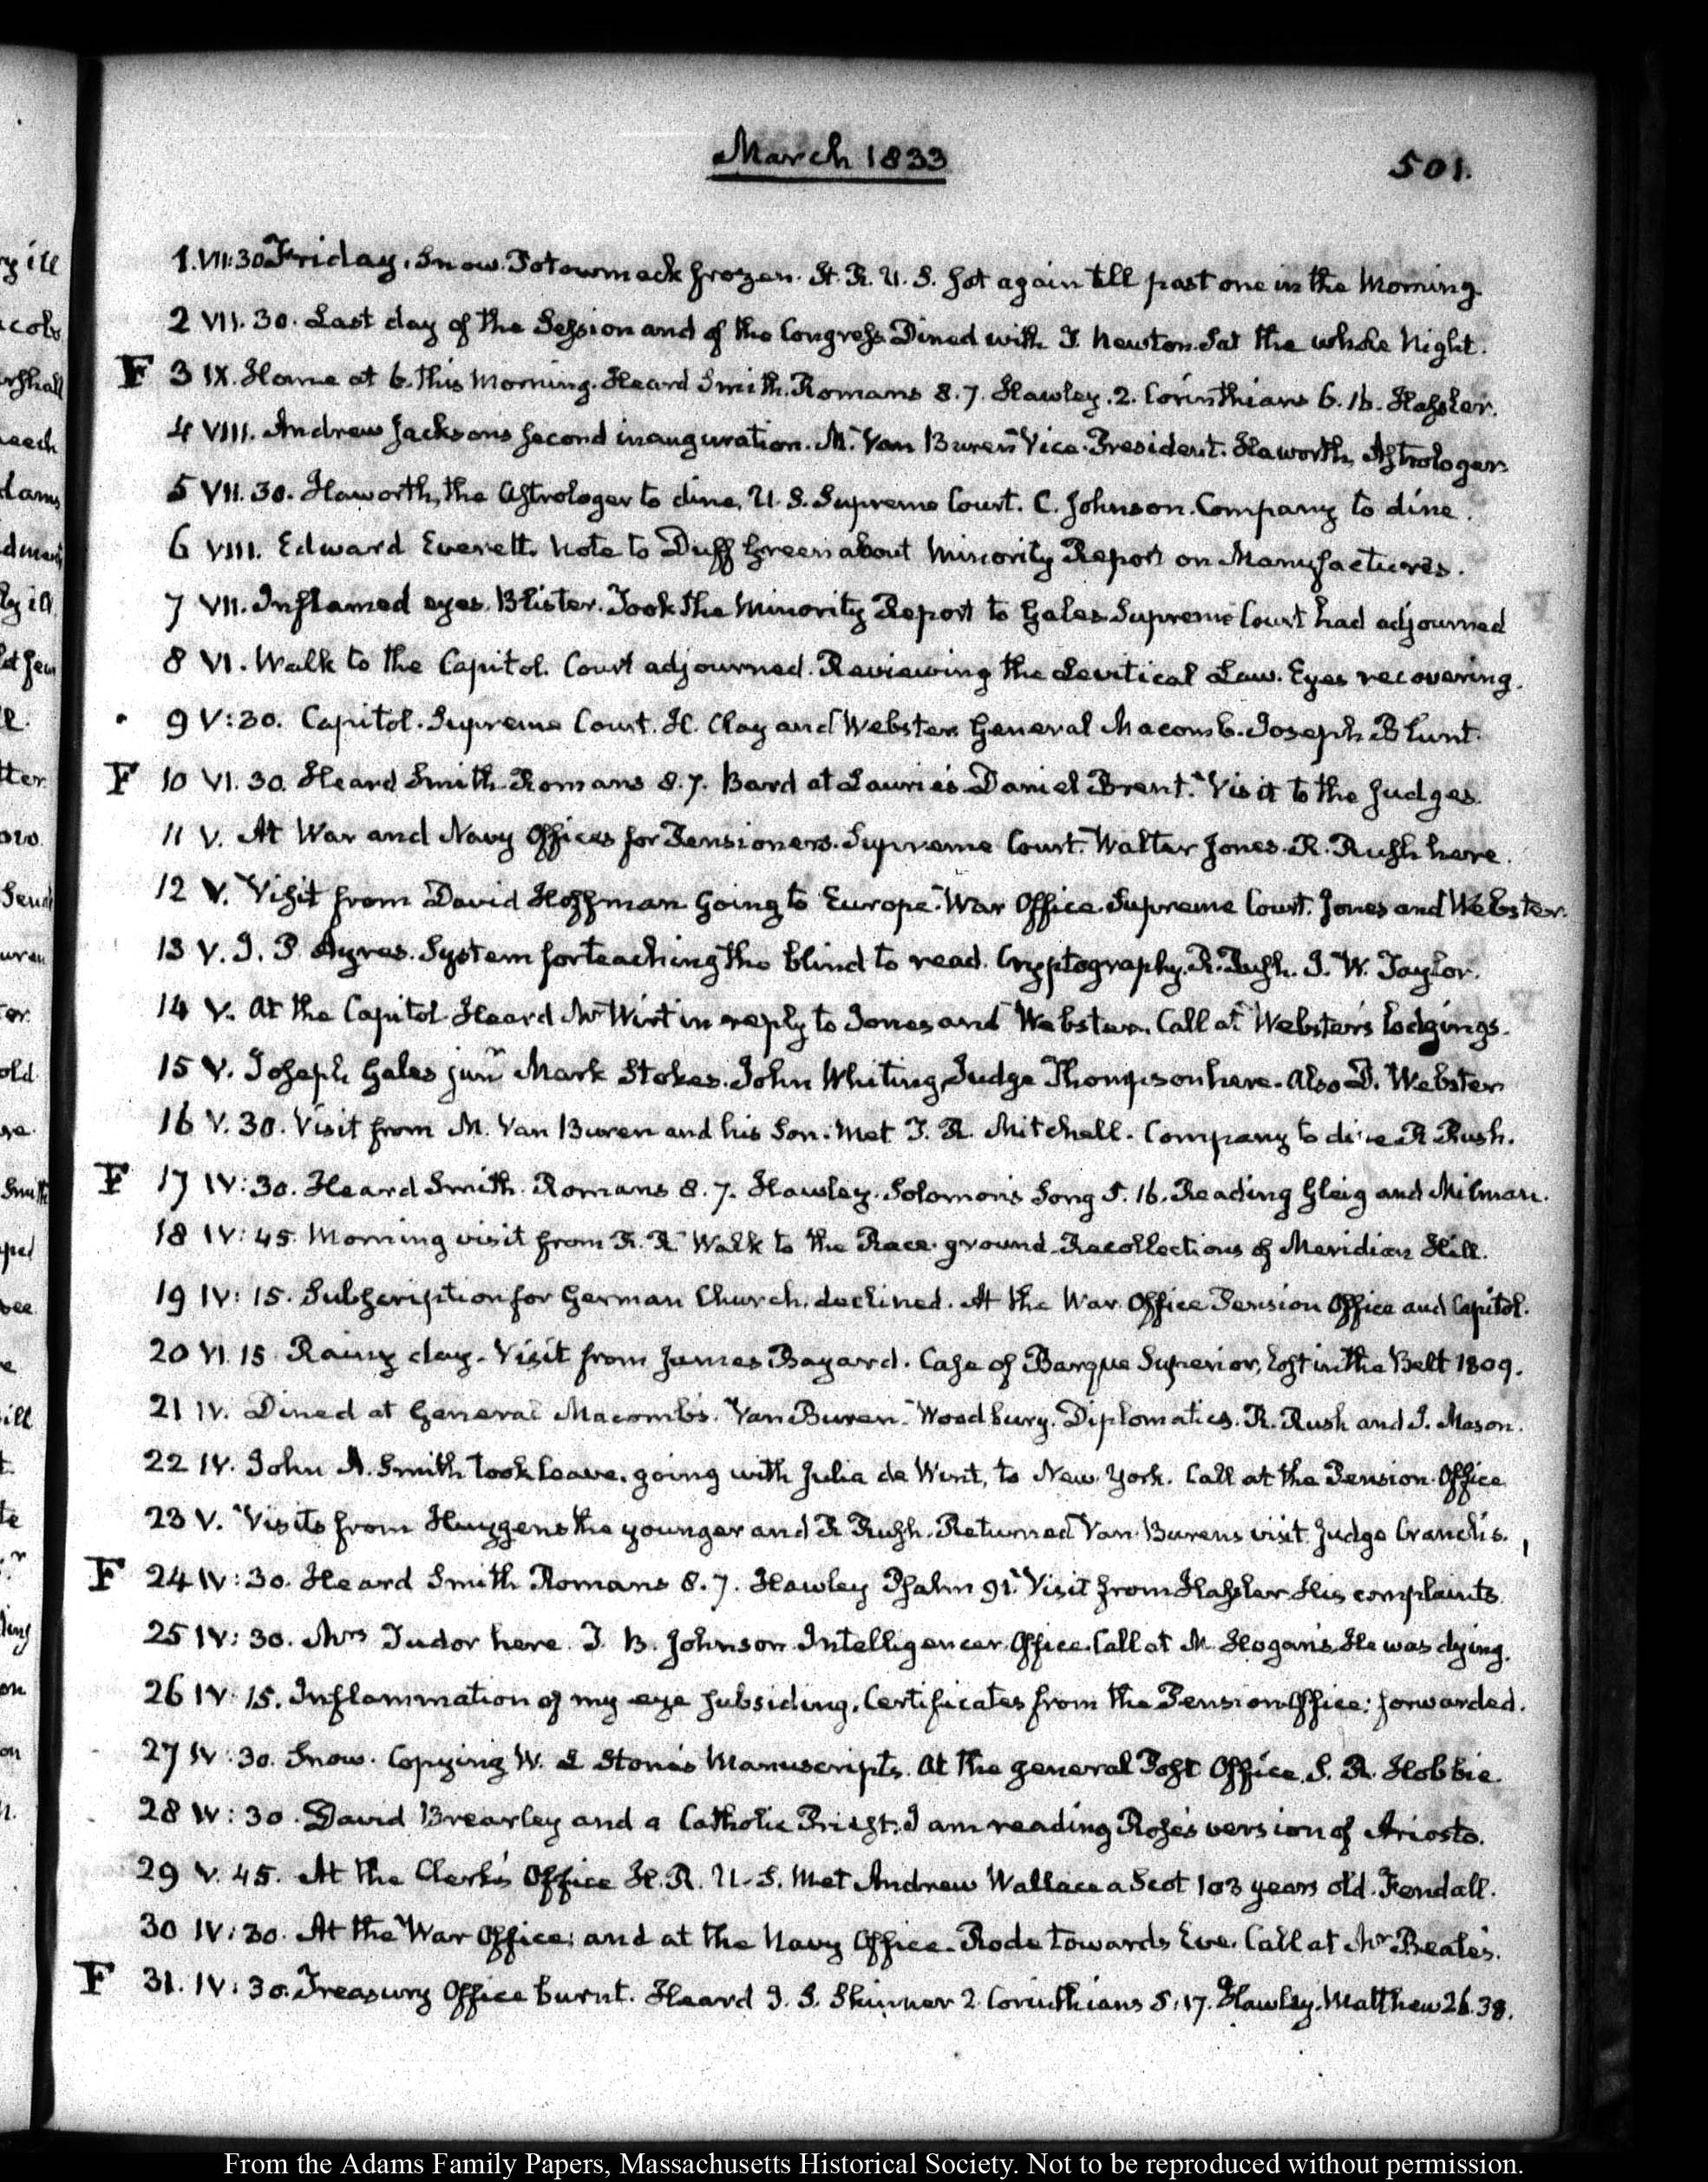 March 1833
501.
1. VII:30 Friday. Snow. Potowmack frozen. H. R. U. S. sat again till past one in the Morning.
2 VII. 30. Last day of the Session and of the Congress. Dined with I. Newton. Sat the whole Night.
F 3 IX. Home at 6. this Morning. Heard Smith. Romans 8. 7. Hawley. 2. Corinthians 6. 16. Hassler.
4 VIII. Andrew Jacksons second inauguration. M. Van Buren Vice-President. Haworth, Astrologer.
5 VII. 30. Haworth, the Astrologer to dine. U. S. Supreme Court. C. Johnson. Company to dine.
6 VIII. Edward Everett. Note to Duff Green about Minority Report on Manufactures.
7 VII. Inflamed eyes. Blister. Took the Minority Report to Gales. Supreme Court had adjourned
8 VI. Walk to the Capitol. Court adjourned. Reviewing the Levitical Law. Eyes recovering.
9 V:30. Capitol. Supreme Court. H. Clay and Webster. General Macomb. Joseph Blunt.
F 10 VI. 30. Heard Smith Romans 8. 7. Bard at Laurie's. Daniel Brent. Visit to the Judges.
11 V. At War and Navy Offices for Pensioners. Supreme Court. Walter Jones. R. Rush here.
12 V. Visit from David Hoffman going to Europe. War Office. Supreme Court. Jones and Webster.
13 V. I. P. Ayres. System for teaching the blind to read. Cryptography. R. Rush. J. W. Taylor.
14 V. At the Capitol. Heard Mr Wirt in reply to Jones and Webster. Call at Webster's lodgings.
15 V. Joseph Gales junr Mark Stokes. John Whiting, Judge Thompson here. Also D. Webster
16 V. 30. Visit from M. Van Buren and his Son. Met T. R. Mitchell. Company to dine R Rush.
F 17 IV:30. Heard Smith. Romans 8. 7. Hawley. Solomon's Song 5. 16. Reading Gleig and Milman.
18 IV:45. Morning visit from R. R. Walk to the Race-ground. Recollections of Meridian Hill.
19 IV:15. Subscription for German Church. declined. At the War Office Pension Office and Capitol.
20 VI. 15 Rainy day. Visit from James Bayard. Case of Barque Superior, lost in the Belt 1809.
21 IV. Dined at General Macomb's. Van Buren. Woodbury. Diplomatics. R. Rush and J. Mason.
22 IV. John A. Smith took leave. going with Julia de Wint, to New York. Call at the Pension Office
23 V. Visits from Huygens the younger and R Rush. Returned Van Burens visit. Judge Cranch's.
F 24 IV:30. Heard Smith Romans 8. 7. Hawley Psalm 91. Visit from Hassler. His complaints.
25 IV:30. Mrs Tudor here. J. B. Johnson. Intelligencer Office. Call at M. Hogan's. He was dying.
26 IV. 15. Inflammation of my eye subsiding. Certificates from the Pension Office: forwarded.
27 IV:30. Snow. Copying W. L Stone's Manuscripts. At the general Post Office. S. R. Hobbie.
28 IV:30. David Brearley and a Catholic Priest. I am reading Rose's version of Ariosto.
29 V. 45. At the Clerk's Office H. R. U. S. Met Andrew Wallace a Scot 103 years old. Fendall.
30 IV:30. At the War Office: and at the Navy Office. Rode towards Eve. Call at Mr Beale's.
F 31. IV:30. Treasury Office burnt. Heard I. S. Skinner 2. Corinthians 5. 17. Hawley. Matthew 26. 38.
From the Adams Family Papers, Massachusetts Historical Society. Not to be reproduced without permission.